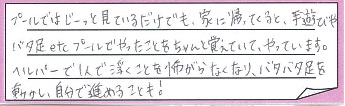 プールではじーっと見ているだけでも、家に帰ってくると、手遊びや
バタ足etcプールでやったことをちゃんと覚えていて、やっています。
ヘルパーで1人で浮くことを怖がらなくなり、バタバタ足を
動かし、自分で進めることも!